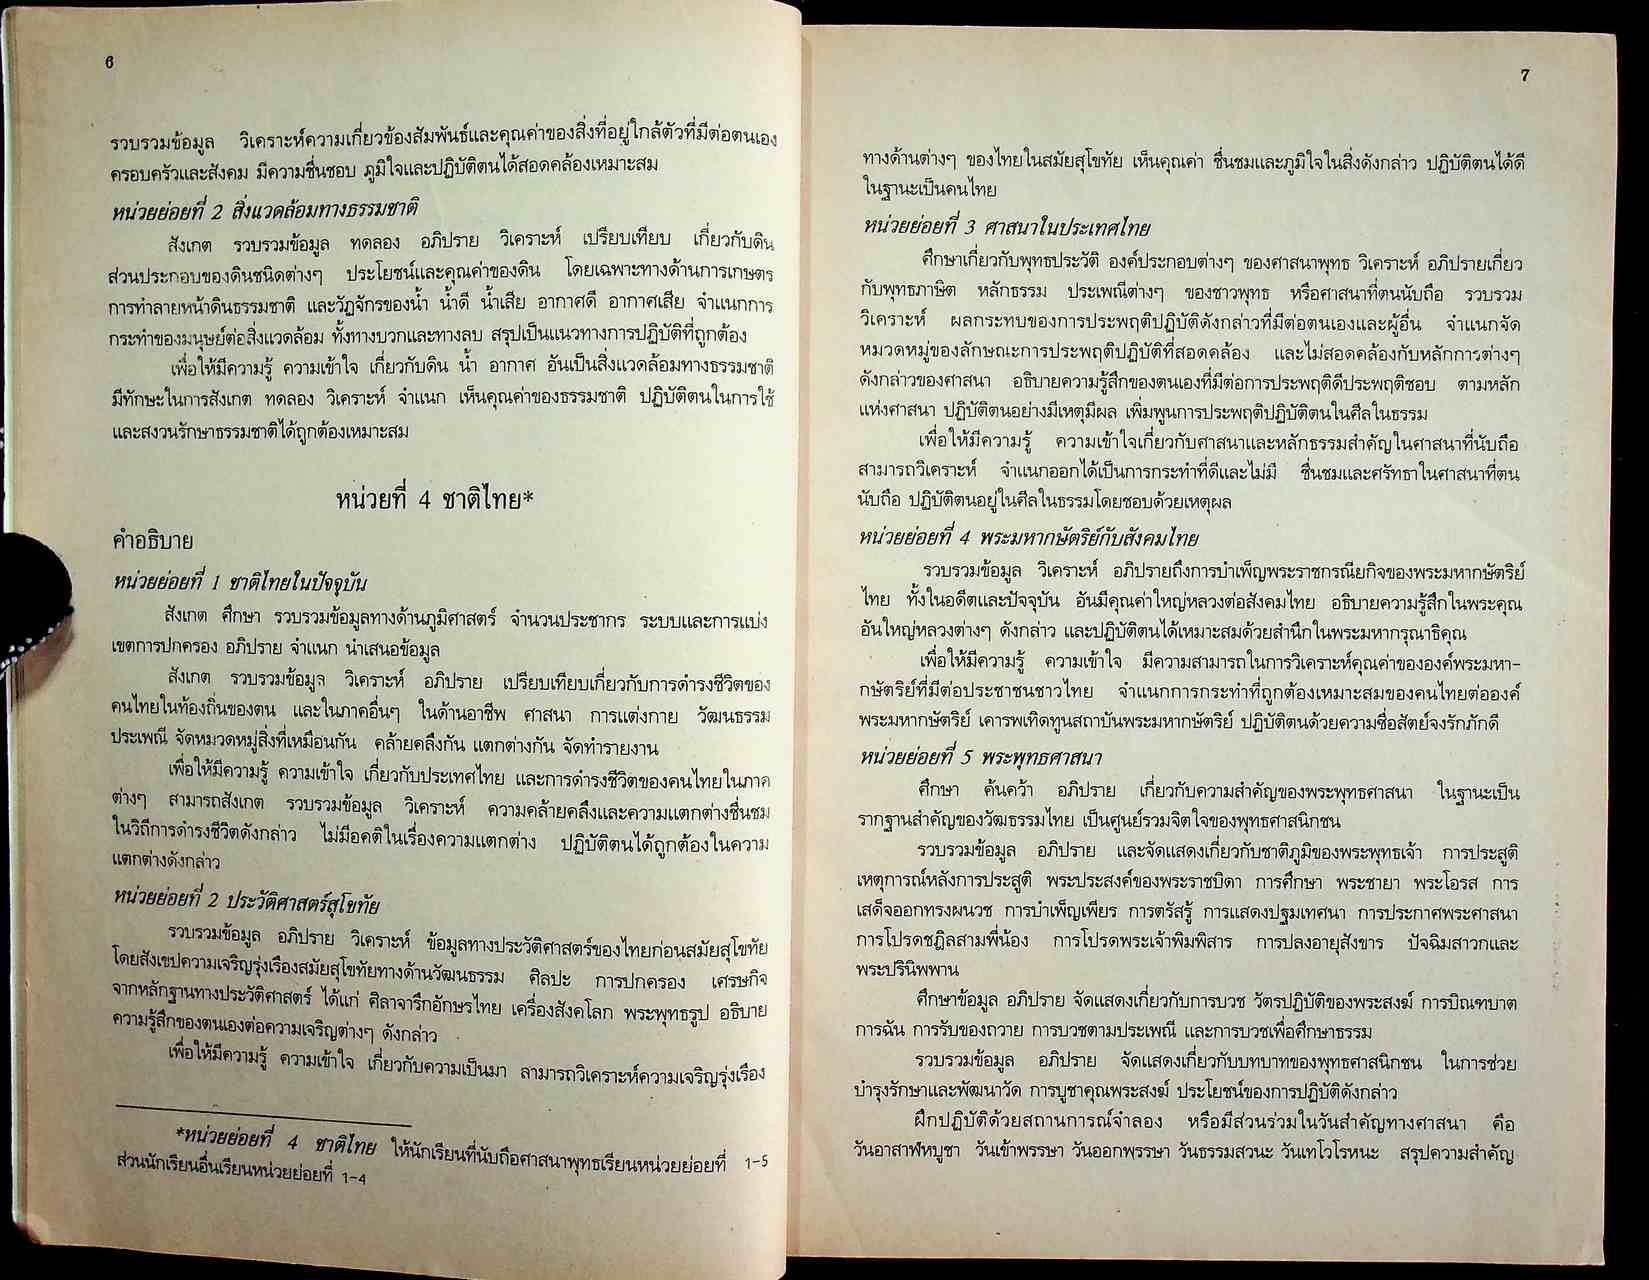 6
รวบรวมข้อมูล วิเคราะห์ความเกี่ยวข้องสัมพันธ์และคุณค่าของสิ่งที่อยู่ใกล้ตัวที่มีต่อตนเอง
ครอบครัวและสังคม มีความชื่นชอบ ภูมิใจและปฏิบัติตนได้สอดคล้องเหมาะสม
หน่วยย่อยที่ 2 สิ่งแวดล้อมทางธรรมชาติ
สังเกต รวบรวมข้อมูล ทดลอง อภิปราย วิเคราะห์ เปรียบเทียบ เกี่ยวกับดิน
ส่วนประกอบของดินชนิดต่างๆ ประโยชน์และคุณค่าของดิน โดยเฉพาะทางด้านการเกษตร
การทำลายหน้าดินธรรมชาติ และวัฏจักรของน้ำ น้ำดี น้ำเสีย อากาศดี อากาศเสีย จำแนกการ
กระทำของมนุษย์ต่อสิ่งแวดล้อม ทั้งทางบวกและทางลบ สรุปเป็นแนวทางการปฏิบัติที่ถูกต้อง
เพื่อให้มีความรู้ ความเข้าใจ เกี่ยวกับดิน น้ำ อากาศ อันเป็นสิ่งแวดล้อมทางธรรมชาติ
มีทักษะในการสังเกต ทดลอง วิเคราะห์ จำแนก เห็นคุณค่าของธรรมชาติ ปฏิบัติตนในการใช้
และสงวนรักษาธรรมชาติได้ถูกต้องเหมาะสม
หน่วยที่ 4 ชาติไทย*
คำอธิบาย
หน่วยย่อยที่ 1 ชาติไทยในปัจจุบัน
สังเกต ศึกษา รวบรวมข้อมูลทางด้านภูมิศาสตร์ จำนวนประชากร ระบบและการแบ่ง
เขตการปกครอง อภิปราย จำแนก นำเสนอข้อมูล
สังเกต รวบรวมข้อมูล วิเคราะห์ อภิปราย เปรียบเทียบเกี่ยวกับการดำรงชีวิตของ
คนไทยในท้องถิ่นของตน และในภาคอื่นๆ ในด้านอาชีพ ศาสนา การแต่งกาย วัฒนธรรม
ประเพณี จัดหมวดหมู่สิ่งที่เหมือนกัน คล้ายคลึงกัน แตกต่างกัน จัดทำรายงาน
เพื่อให้มีความรู้ ความเข้าใจ เกี่ยวกับประเทศไทย และการดำรงชีวิตของคนไทยในภาค
ต่างๆ สามารถสังเกต รวบรวมข้อมูล วิเคราะห์ ความคล้ายคลึงและความแตกต่างชื่นชม
ในวิถีการดำรงชีวิตดังกล่าว ไม่มีอคติในเรื่องความแตกต่าง ปฏิบัติตนได้ถูกต้องในความ
แตกต่างดังกล่าว
หน่วยย่อยที่ 2 ประวัติศาสตร์สุโขทัย
รวบรวมข้อมูล อภิปราย วิเคราะห์ ข้อมูลทางประวัติศาสตร์ของไทยก่อนสมัยสุโขทัย
โดยสังเขปความเจริญรุ่งเรืองสมัยสุโขทัยทางด้านวัฒนธรรม ศิลปะ การปกครอง เศรษกิจ
จากหลักฐานทางประวัติศาสตร์ ได้แก่ ศิลาจารึกอักษรไทย เครื่องสังคโลก พระพุทธรูป อธิบาย
ความรู้สึกของตนเองต่อความเจริญต่างๆ ดังกล่าว
เพื่อให้มีความรู้ ความเข้าใจ เกี่ยวกับความเป็นมา สามารถวิเคราะห์ความเจริญรุ่งเรือง
*หน่วยย่อยที่ 4 ชาติไทย ให้นักเรียนที่นับถือศาสนาพุทธเรียนหน่วยย่อยที่ 1-5
ส่วนนักเรียนอื่นเรียนหน่วยย่อยที่ 1-4
7
ทางด้านต่างๆ ของไทยในสมัยสุโขทัย เห็นคุณค่า ชื่นชมและภูมิใจในสิ่งดังกล่าว ปฏิบัติตนได้ดี
ในฐานะเป็นคนไทย
หน่วยย่อยที่ 3 ศาสนาในประเทศไทย
ศึกษาเกี่ยวกับพุทธประวัติ องค์ประกอบต่างๆ ของศาสนาพุทธ วิเคราะห์ อภิปรายเกี่ยว
กับพุทธภาษิต หลักธรรม ประเพณีต่างๆ ของชาวพุทธ หรือศาสนาที่ตนนับถือ รวบรวม
วิเคราะห์ ผลกระทบของการประพฤติปฏิบัติดังกล่าวที่มีต่อตนเองและผู้อื่น จำแนกจัด
หมวดหมู่ของลักษณะการประพฤติปฏิบัติที่สอดคล้อง และไม่สอดคล้องกับหลักการต่างๆ
ดังกล่าวของศาสนา อธิบายความรู้สึกของตนเองที่มีต่อการประพฤติดีประพฤติชอบ ตามหลัก
แห่งศาสนา ปฏิบัติตนอย่างมีเหตุมีผล เพิ่มพูนการประพฤติปฏิบัติตนในศีลในธรรม
เพื่อให้มีความรู้ ความเข้าใจเกี่ยวกับศาสนาและหลักธรรมสำคัญในศาสนาที่นับถือ
สามารถวิเคราะห์ จำแนกออกได้เป็นการกระทำที่ดีและไม่มี ชื่นชมและศรัทธาในศาสนาที่ตน
นับถือ ปฏิบัติตนอยู่ในศีลในธรรมโดยชอบด้วยเหตุผล
หน่วยย่อยที่ 4 พระมหากษัตริย์กับสังคมไทย
รวบรวมข้อมูล วิเคราะห์ อภิปรายถึงการบำเพ็ญพระราชกรณียกิจของพระมหากษัตริย์
ไทย ทั้งในอดีตและปัจจุบัน อันมีคุณค่าใหญ่หลวงต่อสังคมไทย อธิบายความรู้สึกในพระคุณ
อันใหญ่หลวงต่างๆ ดังกล่าว และปฏิบัติตนได้เหมาะสมด้วยสำนึกในพระมหากรุณาธิคุณ
เพื่อให้มีความรู้ ความเข้าใจ มีความสามารถในการวิเคราะห์คุณค่าขององค์พระมหา-
กษัตริย์ที่มีต่อประชาชนชาวไทย จำแนกการกระทำที่ถูกต้องเหมาะสมของคนไทยต่อองค์
พระมหากษัตริย์ เคารพเทิดทูนสถาบันพระมหากษัตริย์ ปฏิบัติตนด้วยความซื่อสัตย์จงรักภักดี
หน่วยย่อยที่ 5 พระพุทธศาสนา
ศึกษา ค้นคว้า อภิปราย เกี่ยวกับความสำคัญของพระพุทธศาสนา ในฐานะเป็น
รากฐานสำคัญของวัฒธรรมไทย เป็นศูนย์รวมจิตใจของพุทธศาสนิกชน
รวบรวมข้อมูล อภิปราย และจัดแสดงเกี่ยวกับชาติภูมิของพระพุทธเจ้า การประสูติ
เหตุการณ์หลังการประสูติ พระประสงค์ของพระราชบิดา การศึกษา พระชายา พระโอรส การ
เสด็จออกทรงผนวช การบำเพ็ญเพียร การตรัสรู้ การแสดงปฐมเทศนา การประกาศพระศาสนา
การโปรดชฎิลสามพี่น้อง การโปรดพระเจ้าพิมพิสาร การปลงอายุสังขาร ปัจฉิมสาวกและ
พระปรินิพพาน
ศึกษาข้อมูล อภิปราย จัดแสดงเกี่ยวกับการบวช วัตรปฏิบัติของพระสงฆ์ การบิณฑบาต
การฉัน การรับของถวาย การบวชตามประเพณี และการบวชเพื่อศึกษาธรรม
รวบรวมข้อมูล อภิปราย จัดแสดงเกี่ยวกับบทบาทของพุทธศาสนิกชน ในการช่วย
บำรุงรักษาและพัฒนาวัด การบูชาคุณพระสงฆ์ ประโยชน์ของการปฏิบัติดังกล่าว
ฝึกปฏิบัติด้วยสถานการณ์จำลอง หรือมีส่วนร่วมในวันสำคัญทางศาสนา คือ
วันอาสาฬหบูชา วันเข้าพรรษา วันออกพรรษา วันธรรมสวนะ วันเทโวโรหนะ สรุปความสำคัญ